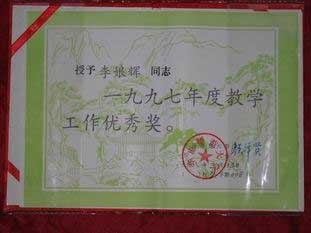 授予李娘辉同志
一九九七年度教学
工作优秀奖。